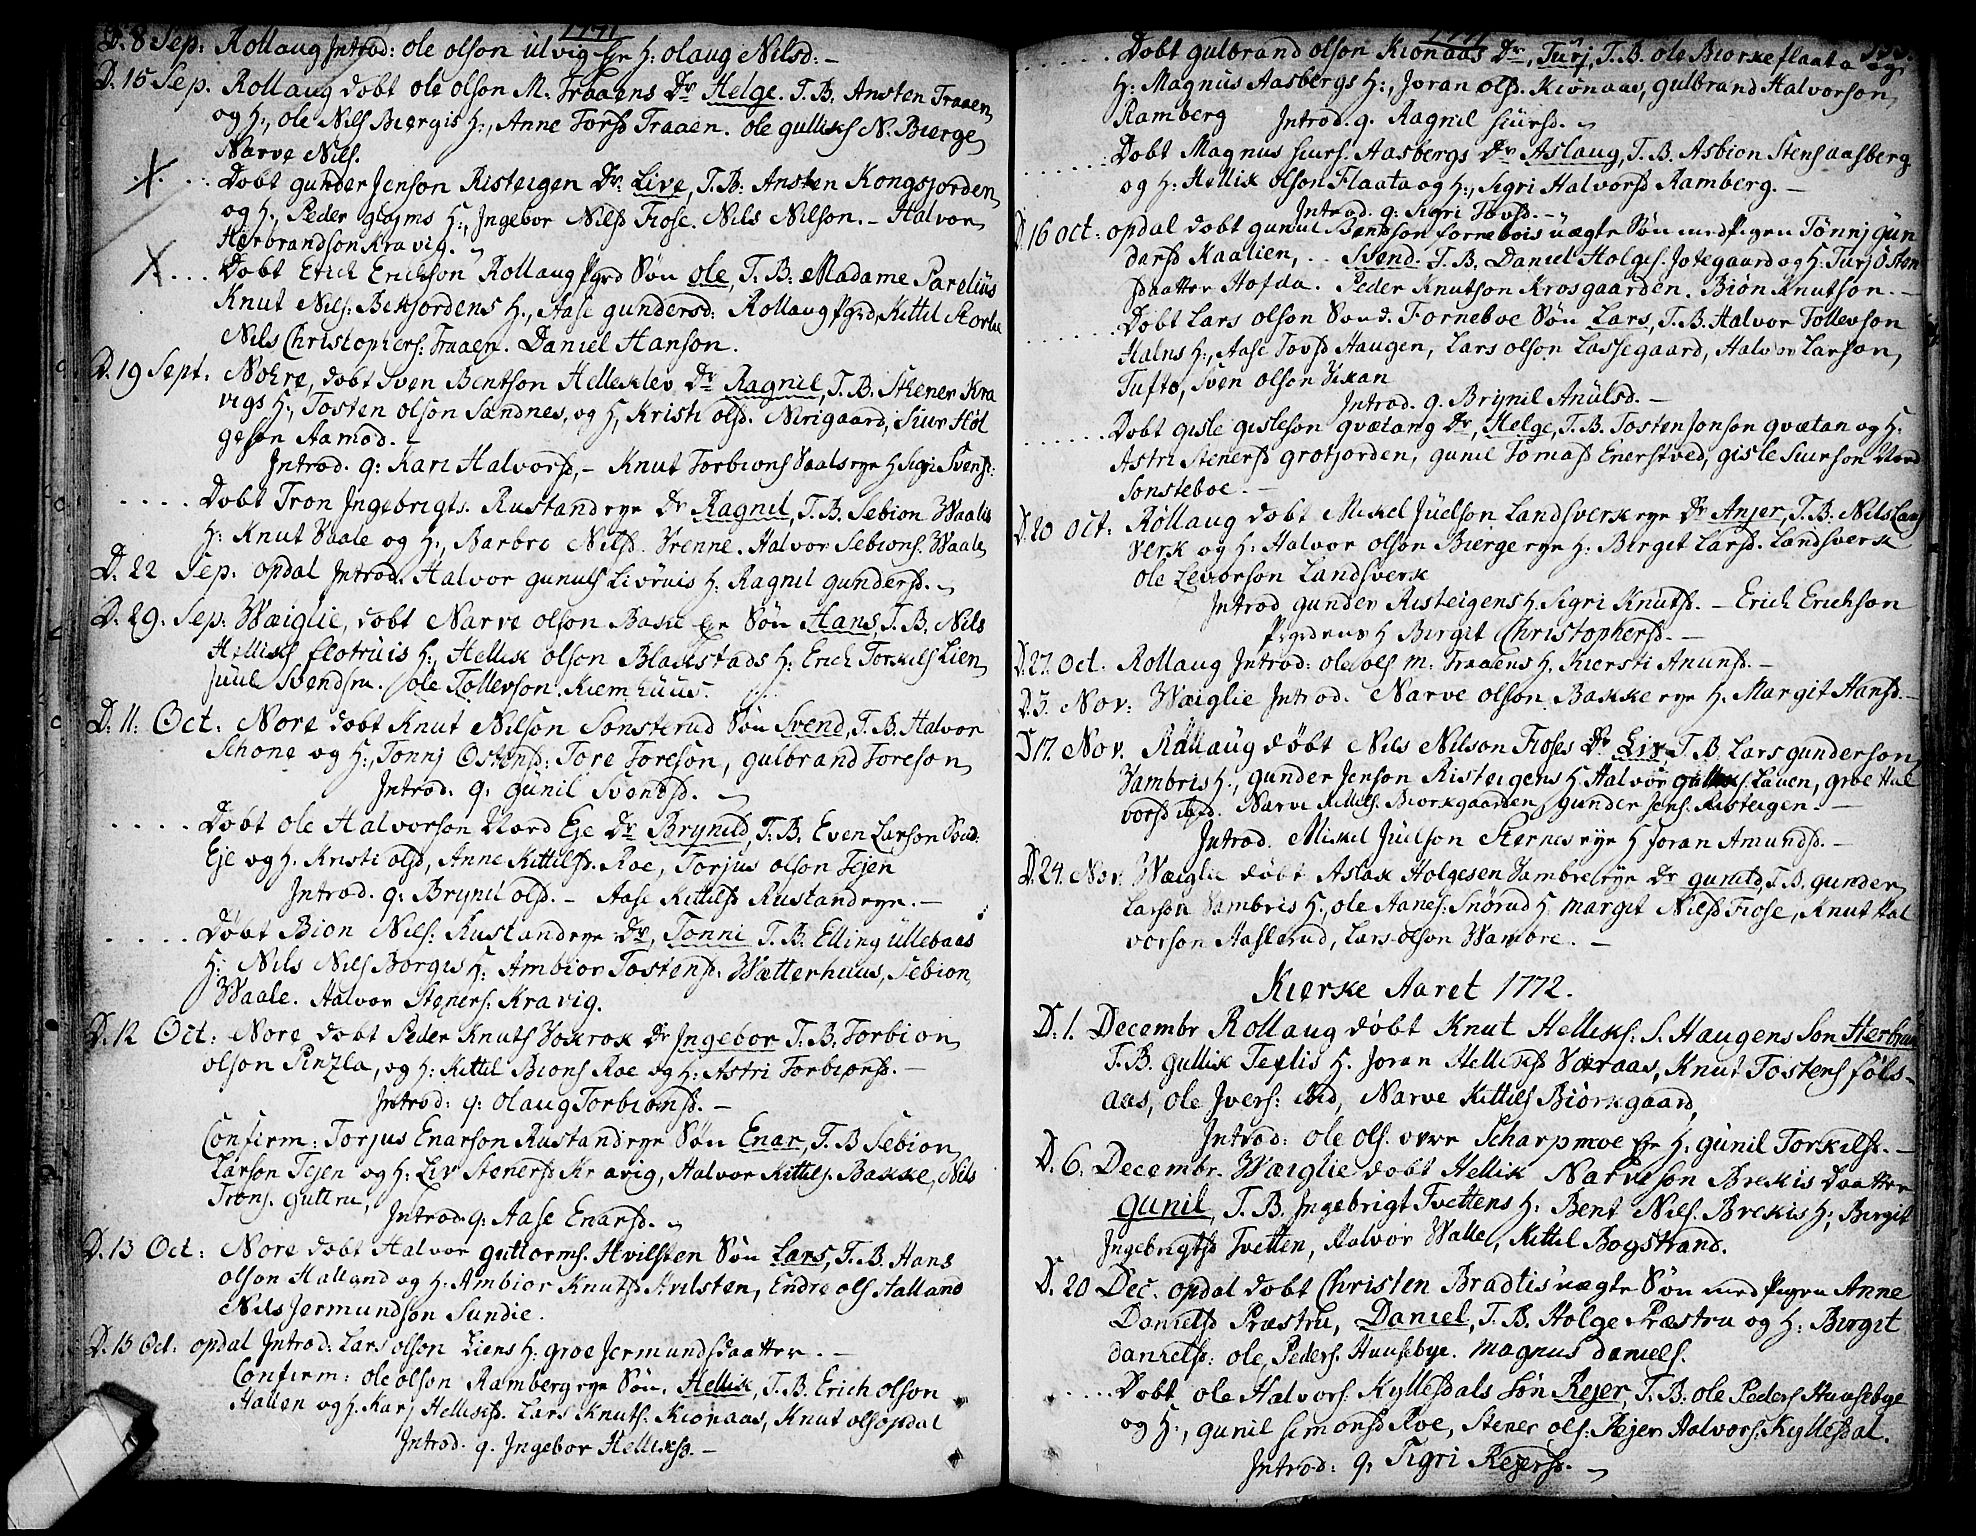 1771
D. 8 Sep: Rollaug Introd: ole olson ulvig Eje H: olaug Nilsd: -
D. 15 Sep. Rollaug dobt ole olson M. Traaens Dr Helge. T.B. Ansten Traaen
og H:, ole Nils Biergis H:, Anne Torsd Traaen. ole gulliks N. Bierge
Narve Nils.
Dobt gunder Jenson Risteigen Dr. Live, T.B. Ansten Kongsjorden
og H:, Peder gloyms H:, Ingebor Nilsd Fiose. Nils Nilson. - Halvor
Herbrandson Kravig.
Dobt Erich Erichson Rollaug Pgrd Søn ole, T.B. Madame Parelius
Knut Nils: Bekjordens H:, Aase gundersd: Rollaug Pgrd, Kittil Storlie
Nils Christophers: Traaen. Daniel Hanson.
D. 19 Sept: Nore, dobt Sven Bentson Helleklev Dr Ragnil, T.B. Stener Kra
vigs H:, Tosten olson Sandnes, og H, Kristi olsd. Nirigaard, Siur Hol
geson Aamod. -
Introd. q: Kari Halvorsd, - Knut Torbions Vaalsrye H Sigri Svensd:
Dobt Tron Ingebrigts. Rustandrye Dr Ragnil, T.B. Sebion Waalis
H: Knut Vaale og H:, Barbro Nilsd. Vrenne. Halvor Sebions. Waale
D. 22 Sep: opdal Introd. Halvor gunuls Livruis H: Ragnil gundersd.
D. 29. Sep: Wæiglie, dobt Narve olson Bakke Eje Søn Hans, T.B. Nils
Helliks flotruis H:, Hellik olson Blakstads H: Erich Torkils Lien
Juul Svendsru. ole Tollevson Kiemhuus.
D. 11. Oct: Nore dobt Knut Nilson Sonsterud Søn Svend, T.B. Halvor
Schone og H:, Tonnj Ostensd: Tore Toreson, gulbrand Toreson
Introd. q: gunil Svendsd.
Dobt ole Halvorson Nord Eje Dr Brynild, T.B. Even Larson Sond.
Eje og H. Kristi olsd, Anne Kittilsd. Roe, Torjus olson Tejen
Introd. q: Brynil olsd. - Aase Kittilsd Rustandrye. -
Døbt Bion Nils: Rustandrye Dr, Tonni T.B. Elling ullebaas
H: Nils Nils Borgis H: Ambior Tostensd: Wætterhuus, Sebion
Waale. Halvor Steners: Kravig.
D. 12 Oct: Nore dobt Peder Knuts Vokrok Dr Ingebor T.B. Torbion
olson Pinzla, og H: Kittil Bions Roe og H: Astri Torbionsd. -
Introd: q: olaug Torbionsd. -
Confirm: Torjus Enarson Rustandrye Søn Enar, T.B Sebion
Larson Tejen og H: Liv Stenersd Kravig, Halvor Kittils. Bakke, Nils
Trons. guttru,
Introd. q: Aase Enarsd.
D. 13 Oct: Nore dobt Halvor guttorms. Hvilsten Søn Lars, T.B. Hans
olson Halland og H: Ambior Knutsd Hvilsten, Endre ols Halland
Nils Jermundson Sundie.
D. 15 Oct: opdal Introd: Lars olson Liens H: groe Jermundsdaatter. -
Confirm: ole olson Ramberg rye Søn. Hellik, T.B. Erich olson
Hallen og H. Kari Helliksd. Lars Knuts: Kionaas, Knut ols opdal
Introd. q. Ingebor Helliksd. -
1771
Dobt gulbrand olson Kionaas Dr, Turj, T.B. ole Biorkeflaata og
H: Magnus Aasbergs H:, Joran olsd. Kionaas, gulbrand Halvorson
Ramberg Introd. q. Ragnil siursd.
Dobt Magnus siurs. Aasbergs Dr Aslaug, T.B. Asbion Stens aasberg
og H: Hellik olson Flaata og H:, Sigri Halvorsd Ramberg. -
Introd. q: Sigri Tovsd. -
D. 16 oct: opdal dobt gunul Bentson Fornebois uægte Søn med Pigen Tonnj gun
darsd Kaalien, .. Svend. T.B. Daniel Holges. Jotegaard og H: Turj Osten
sdaatter Hofda. Peder Knutson Krosgaarden. Biøn Knutson. -
Dobt Lars olson Sond. Forneboe Søn Lars, T.B. Halvor Tollevson
Halns H:, Aase Tovsd Haugen, Lars olson Lassegaard, Halvor Larson
Tufto, Sven olson Vikan
Introd. q. Brynil Anulsd. -
Dobt gisle gisleson gvætang Dr, Helge, T.B. Tosten Jonson gvætan og H:
Astri Stenersd grotjorden, gunil Tomasd Enerstved, gisle Siurson Nord
Sonsteboe. -
D. 20 Oct: Rollaug dobt Mikel Juelson Landsverk rye Dr Anjer, T.B: Nils Lands
verk og H: Halvor olson Bierge rye H: Birgit Larsd. Landsverk
ole Levorson Landsverk
Introd gunder Risteigens H. Sigri Knutsd. - Erich Erichson
Pgrdens H Birgit Christophersd. -
D. 27. Oct. Rollaug Introd: ole ols M: Traaens H. Kiersti Anunsd. -
D. 3. Nov: Wæiglie Introd. Narve olson Bakke rye H. Margit Hansd. -
D 17. Nov. Rollaug døbt Nils Nilson Fioses Dr Liv T.B Lars gunderson
Vambris H:, gunder Jenson Risteigens H Halvor gulliks. Lauen, groe Hal
vorsd ibid. Narve Kittils. Biorkgaarden, gunder Jens. Risteigen. -
Introd. Mikel Juelson Sternes rye H Joran Amundsd. -
D. 24. Nov. Wæiglie døbt Aslak Holgesen Vambre rye Dr gunild, T.B. gunder
Larson Vambris H:, ole Aanes: Snørud H Margit Nilsd Fiose, Knut Hal
vorson Aaslerud, Lars olson Wambre. -
Kierke Aaret 1772.
D. 1. Decembr Rollaug døbt Knut Helliks: S. Haugens Søn Herbran
T.B. gullik Teflis H. Joran Helliksd Væraas, Knut Tostens føls-
aas, ole Jvers: ibid, Narve Kittils Biorkgaard,
Introd: ole ols. øvre Scharpmoe Eje H: gunil Torkilsd. -
D. 6. Decembr. Wæiglie dobt Hellik Narveson Brekis Daatter
gunil, T.B. Ingebrigt Tvettens H: Bent Nils. Brekis H; Birgit
Ingebrigtsd Tvetten, Halvor Walle, Kittil Bogstrand.
D. 20 Dec. opdal dobt Christen Bradtis uægte Søn med Pigen Anne
Danielsd Præstru, Daniel, T.B. Holge Præstru og H: Birgit
danielsd: ole Peders. Huusebye. Magnus daniels.
Dobt ole Halvors. Kyllesdals Søn Rejer, T.B: ole Peders Huusebye
og H:, gunil simonsd Roe, Stener ols: Rejer Halvors: Kyllesdal.
Introd: q: Sigri Rejersd. -